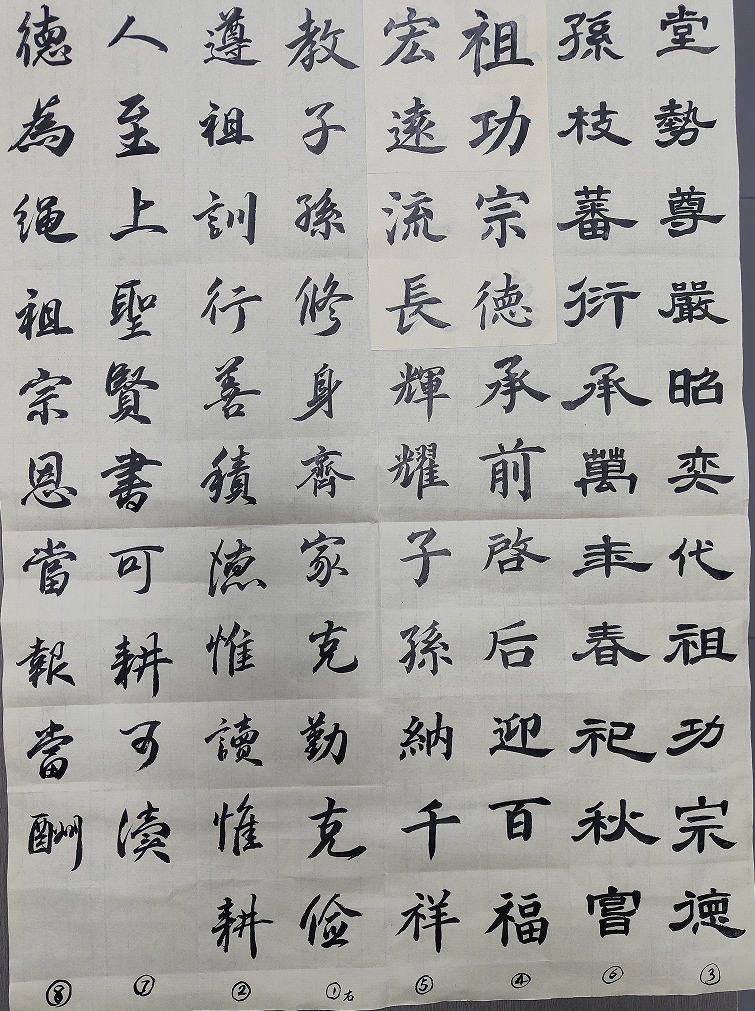 堂勢尊嚴昭奕代祖功宗德③
孫枝蕃衍承萬年春祀秋嘗⑥
祖功宗德承前啓后迎百福④
宏遠流長輝耀子孫納千祥⑤
教子孫修身齊家克勤克俭①右
遵祖訓行善積德惟讀惟耕②
人至上聖賢書可耕可读⑦
德為绳祖宗恩當報當酬⑧